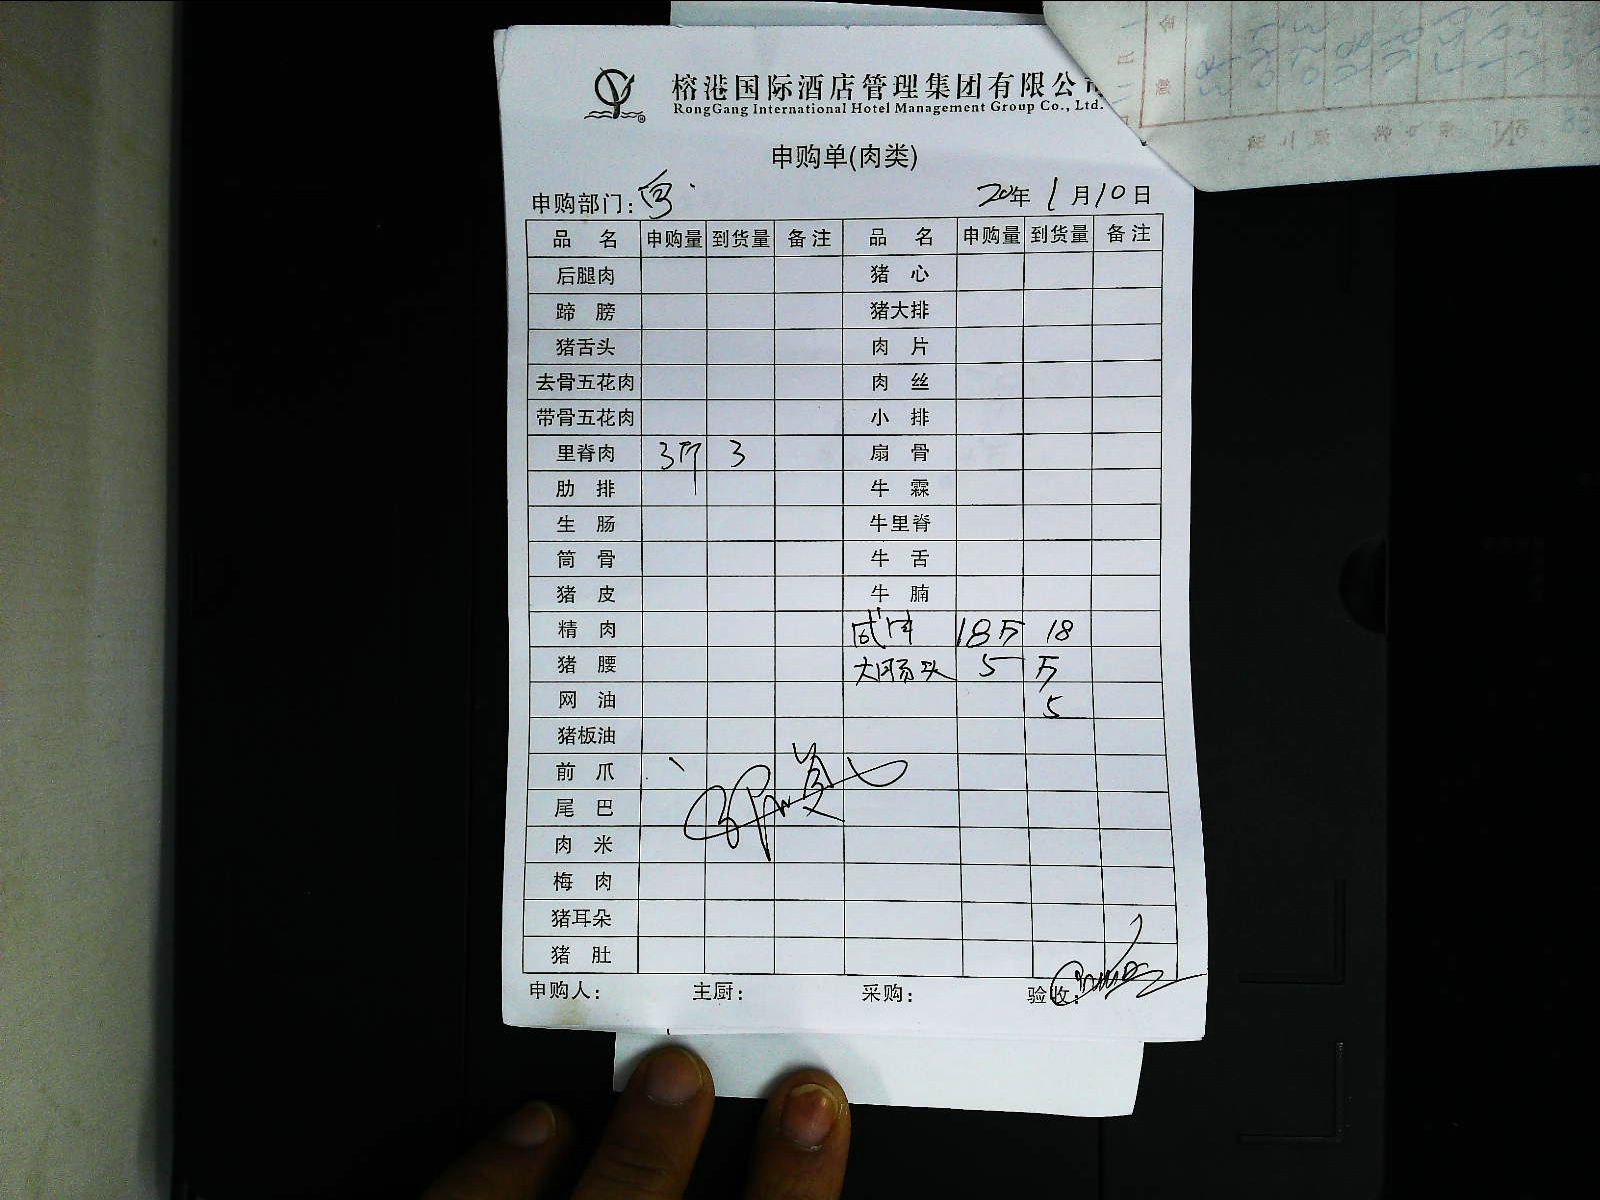 榕港国际酒店管理集团有限公司
RongGang International Hotel Management Group Co., Ltd.
申购单(肉类)
申购部门: 20年 1月10日
品 名 申购量 到货量 备注 品 名 申购量 到货量 备注
后腿肉 猪 心
蹄 膀 猪大排
猪舌头 肉 片
去骨五花肉 肉 丝
带骨五花肉 小 排
里脊肉 3斤 3 扇 骨
肋 排 牛 霖
生 肠 牛里脊
筒 骨 牛 舌
猪 皮 牛 腩
精 肉 咸肉 18斤 18
猪 腰 大肠头 5 斤
网 油 5
猪板油
前 爪
尾 巴
肉 米
梅 肉
猪耳朵
猪 肚
申购人: 主厨: 采购: 验收: